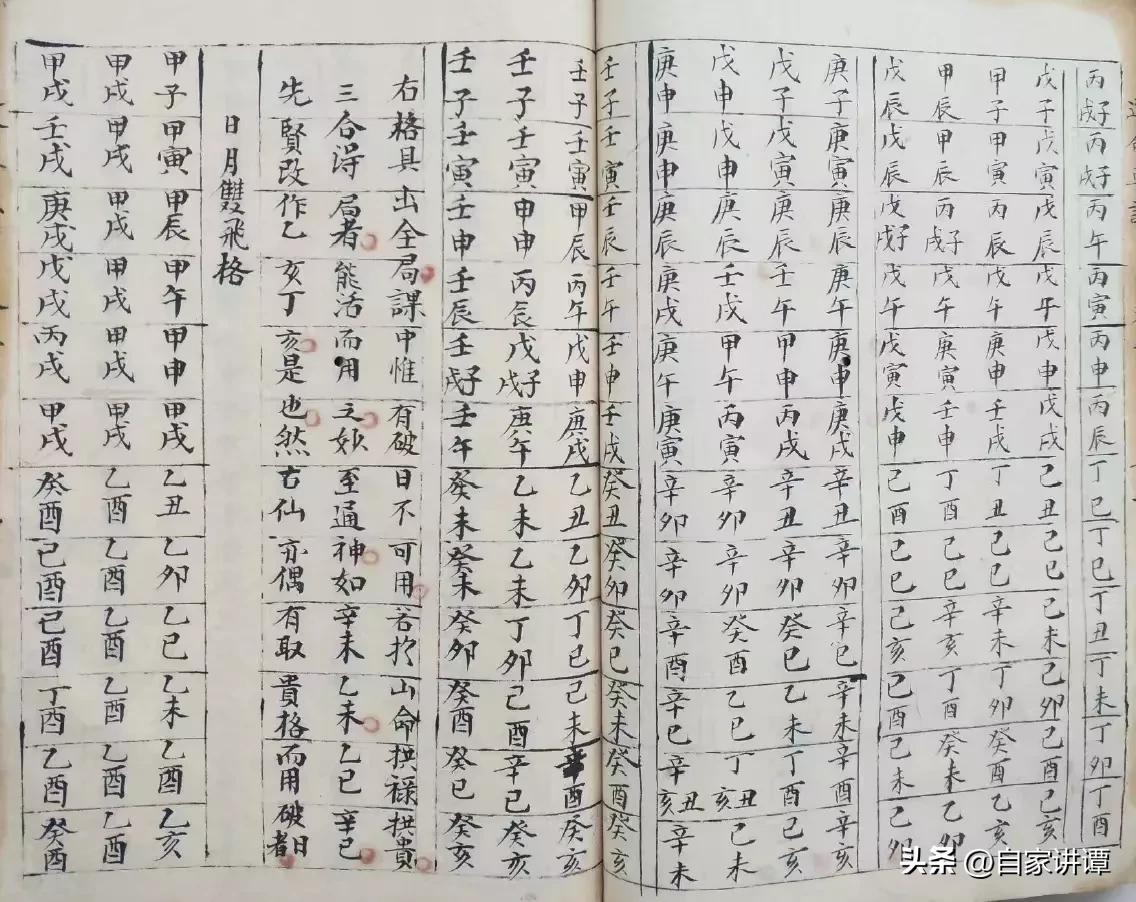 丙戌子丙戌子丙午丙寅丙申丙辰丁巳丁巳丁丑丁未丁卯丁酉
戊子戊寅戊辰戊午戊申戊戌己丑己巳己未己卯己酉己亥
甲子甲寅丙辰丙午庚申壬戌丁丑己巳辛未丁卯癸酉乙亥
甲辰甲辰丙戌子戊午庚寅壬申丁酉己巳辛亥丁酉癸未乙卯
戊辰戊辰戊戌子戊午戊寅戊申己酉己巳己亥己酉己未己卯
庚子庚寅庚辰庚午庚申庚戌辛丑辛卯辛巳辛未辛酉辛亥
戊子戊寅庚辰壬午甲申丙戌辛丑辛卯癸巳乙未丁酉己亥
戊申戊申庚辰壬戌甲午丙寅辛卯辛卯癸酉乙巳丁亥丑己未
庚申庚申庚辰庚戌庚午庚寅辛卯辛卯辛酉辛巳辛亥丑辛未
壬子壬寅壬辰壬午壬申壬戌癸丑癸卯癸巳癸未癸酉癸亥
壬子壬寅甲辰丙午戊申庚戌乙丑乙卯丁巳己未辛酉癸亥
壬子壬寅申申丙辰戊戌子庚午乙未乙未丁卯己酉辛巳癸亥
壬子壬寅壬申壬辰壬戌子壬午癸未癸未癸卯癸酉癸巳癸亥
右格具出全局課中惟有破日不可用若於山命拱祿拱貴
三合得局者能活而用之妙至通神如辛未乙未乙巳辛巳
先賢改作乙亥丁亥是也然古仙亦偶有取貴格而用破日者
日月雙飛格
甲子甲寅甲辰甲午甲申甲戌乙丑乙卯乙巳乙未乙酉乙亥
甲戌甲戌甲戌甲戌甲戌甲戌乙酉乙酉乙酉乙酉乙酉乙酉
甲戌壬戌庚戌戊戌丙戌甲戌癸酉己酉己酉丁酉乙酉癸酉
头条 @自家讲谭